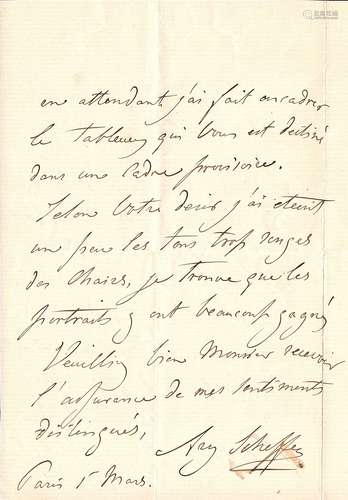 en attendant j'ai fait encadrer
le tableau qui vous est destiné
dans une cadre provisoire.
Selon votre desir j'ai eteint
un peu les tons trop rouges
des chairs, je trouve que les
portraits y ont beaucoup gagnés
Veuillez bien Monsieur recevoir
l'assurance de mes sentiments
distingués,
Ary Scheffer
Paris 5 Mars.